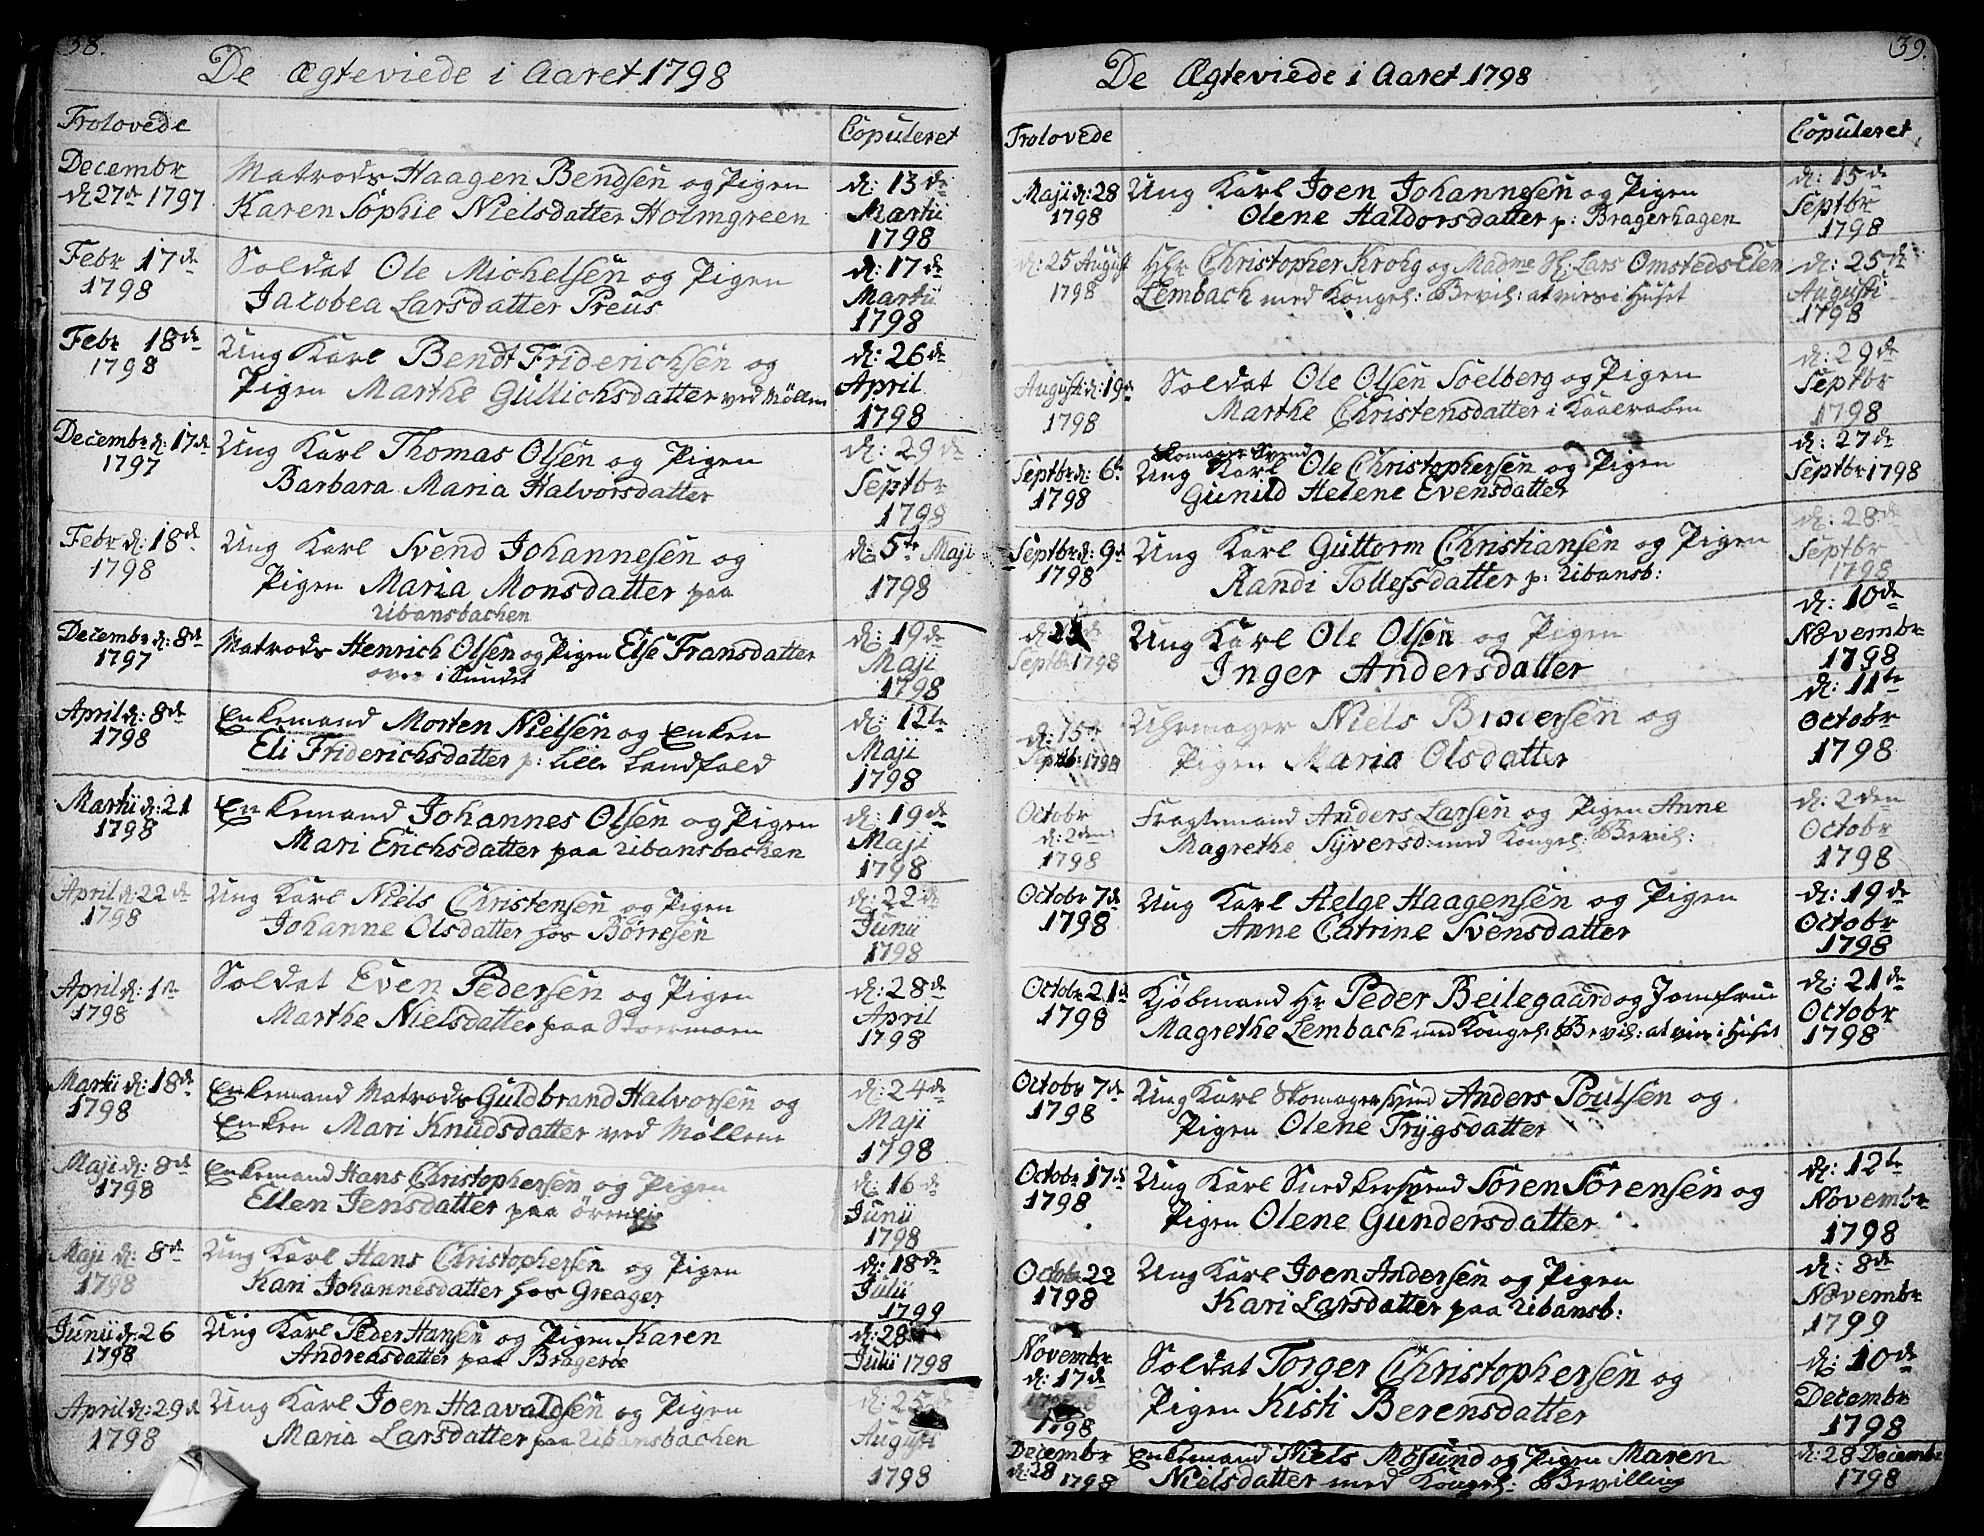 38.
De Ægteviede i Aaret 1798
Trolovede
Copuleret
Decembr
d: 27de 1797
Matrods Haagen Bendsen og Pigen
Karen Sophie Nielsdatter Holmgreen
d: 13de
Martii
1798
Febr 17de
1798
Soldat Ole Michelsen og Pigen
Jacobea Larsdatter Preus
d: 17de
Martii
1798
Febr 18de
1798
Ung Karl Bendt Friderichsen og
Pigen Marthe Gullichsdatter ved Møllen
d: 26de
April
1798
Decembr d: 17de
1797
Ung Karl Thomas Olsen og Pigen
Barbara Maria Halvorsdatter
d: 29de
Septbr
1798
Febr d: 18de
1798
Ung Karl Svend Johannesen og
Pigen Maria Monsdatter paa
Ubansbachen
d: 5te Maji
1798
Decembr d: 8de
1797
Matrods Henrich Olsen og Pigen Else Fransdatter
over i Sundet
d: 19de
Maji
1798
April d: 8de
1798
Enkemand Morten Nielsen og Enken
Eli Friderichsdatter p: Lille Landfald
d: 12te
Maji
1798
Martii d: 21
1798
Enkemand Johannes Olsen og Pigen
Mari Erichsdatter paa Ubansbachen
d: 19de
Maji
1798
April d: 22de
1798
Ung Karl Niels Christensen og Pigen
Johanne Olsdatter hos Børresen
d: 22de
Junii
1798
April d: 1te
1798
Soldat Even Pedersen og Pigen
Marthe Nielsdatter paa Stormoen
d: 28de
April
1798
Martii d: 18de
1798
Enkemand Matrods Guldbrand Halvorsen og
Enken Mari Knudsdatter ved Møllene
d: 24de
Maji
1798
Maji d: 8de
1798
Enkemand Hans Christophersen og Pigen
Ellen Jensdatter paa
d: 16de
Junii
1798
Maji d: 8de
1798
Ung Karl Hans Christophersen og Pigen
Kari Johannesdatter hos Greager
d: 18de
Julii
1799
Junii d: 26
1798
Ung Karl Peder Hansen og Pigen Karen
Andreasdatter paa Bragerøe
d: 28
Julii 1798
April d: 29de
1798
Ung Karl Joen Haavaldsen og Pigen
Maria Larsdatter paa Ubansbachen
d: 25de
Augusti
1798
39.
De Ægteviede i Aaret 1798
Trolovede
Copuleret
Maji d: 28
1798
Ung Karl Joen Johannesen og Pigen
Olene Haldorsdatter p: Bragerhagen
d: 15de
Septbr
1798
d: 25 August
1798
Hr Christopher Krohg og Madme Sl: Lars Omsteds Elen
Lembach med Kongel: Bevil: at vies i Huset
d: 25de
Augusti
1798
Augusti d: 19de
1798
Soldat Ole Olsen Soelberg og Pigen
Marthe Christensdatter i
d: 29de
Septbr
1798
Septbr d: 6te
1798
Skomager Svend
Ung Karl Ole Christophersen og Pigen
Gunild Helene Evensdatter
d: 27de
Septbr 1798
Septbr d: 9de
1798
Ung Karl Guttorm Christiansen og Pigen
Randi Tollefsdatter p: Ubansb:
d: 28de
Septbr
1798
d:
Septbr 1798
Ung Karl Ole Olsen og Pigen
Inger Andersdatter
d: 10de
Novembr
1798
d: 15de
Septb: 1798
Uhrmager Niels Brodersen og
Pigen Maria Olsdatter
d: 11te
Octobr
1798
Octobr
d: 2den
1798
Fragtemand Anders Larsen og Pigen Anne
Magrethe Syversd: med Kongel: Bevil:
d: 2den
Octobr
1798
Octobr 7de
1798
Ung Karl Helge Haagensen og Pigen
Anne Catrine Svensdatter
d: 19de
Octobr
1798
Octobr 21de
1798
Kjøbmand Hr Peder Beilegaard og Jomfrue
Magrethe Lembach med Kongel: Bevil: at vies i Huset
d: 21de
Octobr
1798
Octobr 7de
1798
Ung Karl Skomagersvend Anders Poulsen og
Pigen Olene Trygsdatter
Octobr 17de
1798
Ung Karl Snedkersvend Søren Sørensen og
Pigen Olene Gundersdatter
d: 12te
Novembr
1798
Octobr 22
1798
Ung Karl Joen Andersen og Pigen
Kari Larsdatter paa Ubansb:
d: 8de
Novembr
1799
Novembr
d: 17de
1798
Soldat Torger Christophersen og
Pigen Kisti Berensdatter
d: 10de
Decembr
1798
Decembr
d: 28 1798
Enkemand Niels Mosund og Pigen Maren
Nielsdatter med Kongel: Bevilling
d: 28 Decembr
1798